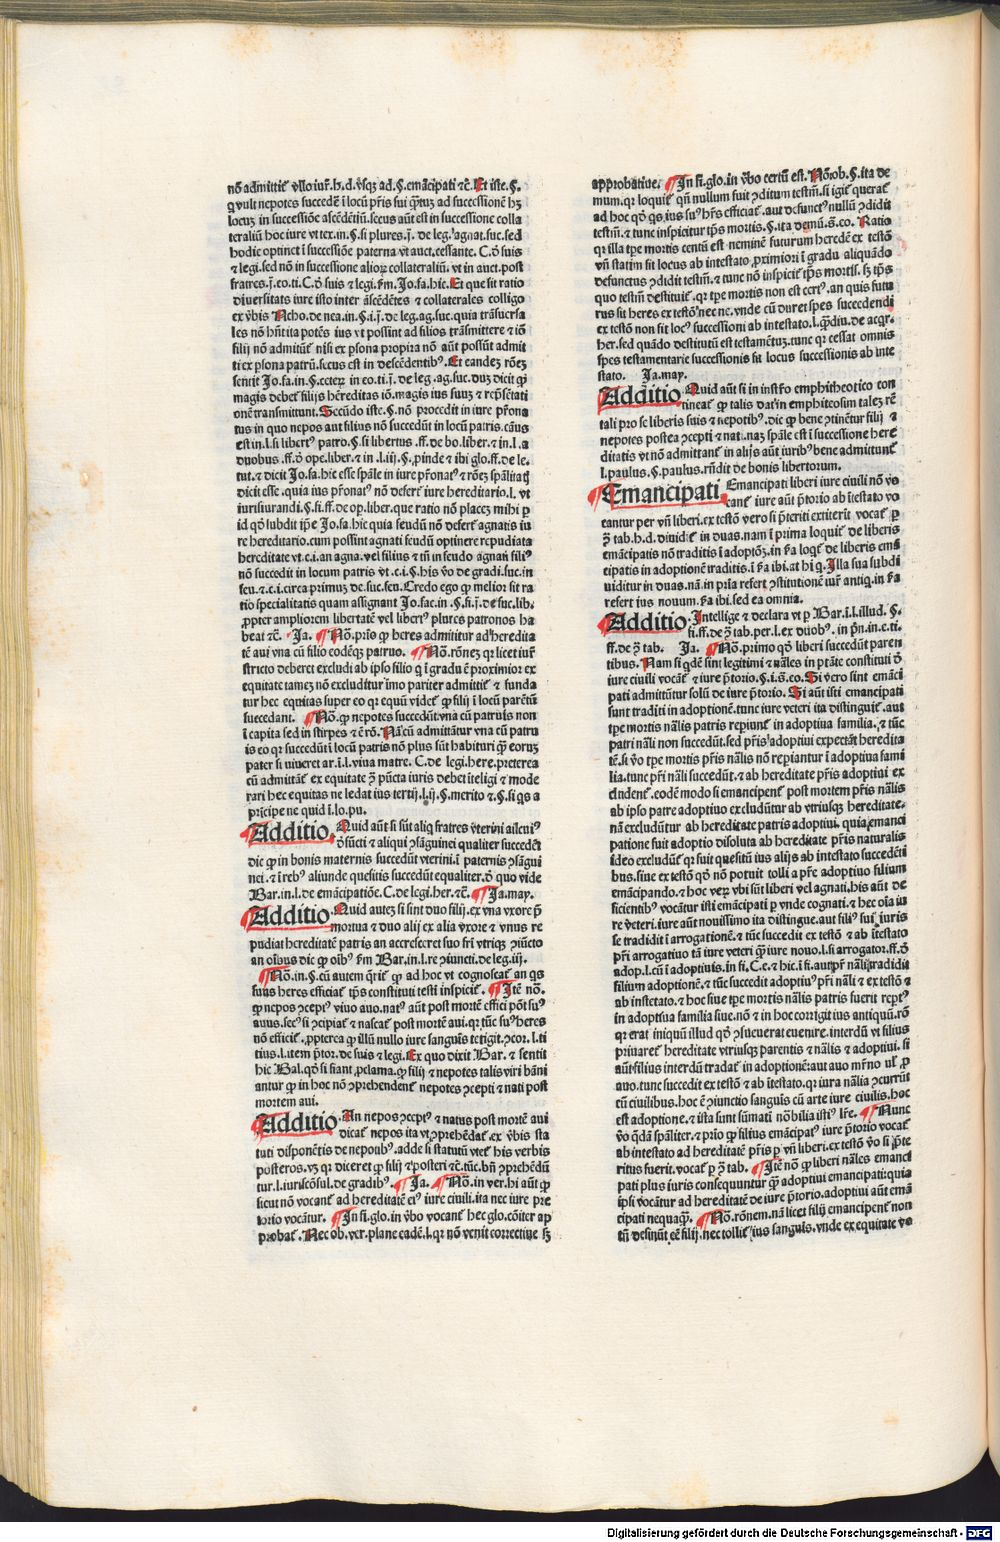 nō admittit̄ vllo iur̄.h.d.vsqꝫ ad.§.emācipati ⁊c̄. Et iste.§.
ꝙ vult nepotes succedē ī locū pr̄is sui q̄ntuꝫ ad successionē hꝫ
locuꝫ in successiōe ascēdētiū.secus aūt est in successione colla
teraliū hoc iure vt tex.in.§.si plures.j̄.de leg.agnat.suc.sed
hodie optinet ī successiōe paterna vt auct.cessante. C.ō suis
⁊ legi.sed nō in successione alioꝝ collateraliū.vt in auct.post
fratres.j̄.eo.ti.C.ō suis ⁊ legi.fm̄.Jo.fa.hic. Et que sit ratio
diuersitatis iure isto inter ascēdētes ⁊ collaterales colligo
ex v̄bis Acho.de nea.in.§.i.j̄.de leg.ag.suc.quia trāsuersa
les nō hn̄t ita potēs ius vt possint ad filios trāsmittere ⁊ iō
filij nō admitūt nisi ex psona propira nō aūt possūt admit
ti ex psona patrū.secus est in descēdentibꝰ. Et eandez rōez
sentit Jo.fa.in.§.ceteꝝ in eo.ti.j̄.de leg.ag.suc.duꝫ dicit ꝙ
magis debet̄ filijs hēreditas iō.magis ius suuꝫ ⁊ rep̄sētati
onē transmittunt. Secūdo iste.§.nō procedit in iure pr̄ona
tus in quo nepos aut filius nō succedunt in locū patris.cāus
est in.l.si libertꝰ patro.§.si libertus.ff.de bo.liber.⁊ in.l.a
duobus.ff.ō ope.liber.⁊ in.l.iij.§.ꝓinde ⁊ ibi glo.ff.de le.
tut.⁊ dicit Jo.fa.hic esse sp̄ale in iure pr̄onatꝰ ⁊ rōez sp̄alitatꝭ
dicit esse.quia ius pr̄onatꝰ nō defert̄ iure hereditario.l.vt
iurisiurandi.§.si.ff.de op̄.liber.que ratio nō placeꝫ mihi ꝑ
id qō subdit ip̄e Jo.fa.hic quia feudū nō defert̄ agnatis iu
re hereditario.cum possint agnati feudū optinere repudiata
hereditate vt.c.i.an agna.vel filius ⁊ tn̄ in feudo agnati filiꝰ
nō succedit in locum patris vt.c.i.§.his v̄o de gradi.suc.in
feu.⁊.c.i.circa primuꝫ de.suc.feu.Credo ego ꝙ melior sit ra
tio specialitatis quam assignant Jo.fac.in.§.fi.j̄.de suc.lib.
ꝓpter ampliorem libertatē vel libertꝰ plures patronos ha
beat ⁊c̄. Ja. ¶ Nō.prīo ꝙ heres admititur ad heredita
tē aui vna cū filio eodēqꝫ patruo. ¶ Nō.rōneꝫ qr licet iur̄
stricto deberet excludi ab ipso filio q̄ ī gradu ē proximior ex
equitate tameꝫ nō excluditur īmo pariter admittit̄ ⁊ funda
tur hec equitas super eo qr equū videt̄ ꝙ filij ī locū parētū
succedant. ¶ Nō.ꝙ nepotes succedūt.vna cū patruis non
ī capita sed in stirpes ⁊ ē rō. Nā cū admittātur vna cū patru
is eo qr succedūt ī locū patris nō plus sūt habituri q̄ eorꝫ
pater si viueret ar.ī.l.viua matre. C.de legi.here.preterea
cū admittāt̄ ex equitate ꝯ̄ pūcta iuris debet īteligi ⁊ mode
rari hec equitas ne ledat ius tertij.l.ij.§.merito ⁊.§.si qs a
prīcipe ne quid ī.lo.pu.
Additio. Quid aūt si sūt aliq fratres vterini alicuiꝰ
ōfūcti ⁊ aliqui ꝯsāguinei qualiter succedēt
dic ꝙ in bonis maternis succedūt vterini.ī paternis ꝯsāgui
nei.⁊ ī rebꝰ aliunde quesitis succedūt equaliter.ō quo vide
Bar.in.l.de emācipatiōe.C.de legi.her.⁊c̄. ¶ Ja.may.
Additio. Quid auteꝫ si sint duo filij.ex vna vxore p̄
mortua ⁊ duo alij ex alia vxore ⁊ vnus re
pudiat hereditatē patris an accrescret suo fr̄i vtriqꝫ ꝯiūcto
an oībus dic ꝙ oībꝰ fm̄ Bar.in.l.re ꝯiuncti.de leg.iij.
¶ Nō.in.§.cū autem q̄rit̄ ꝙ ad hoc vt cognoscat̄ an qs
suus heres efficiat̄ tp̄s constituti testi inspicit̄. ¶ Itē nō.
ꝙ nepos ꝯceptꝰ viuo auo.natꝰ aūt post mortē effici pōt suꝰ
auus.secꝰ si ꝯcipiat̄ ⁊ nascat̄ post mortē aui.qr tūc suꝰ heres
nō efficit̄.ꝓpterea ꝙ illū nullo iure sanguīs tetigit.ꝯcor.l.ti
tius.l.item p̄tor.de suis ⁊ legi. Ex quo dixit Bar. ⁊ sentit
hic Bal.qō si fiant ꝓclama.ꝙ filij ⁊ nepotes talis viri bāni
antur ꝙ in hoc nō ꝯprehendent̄ nepotes ꝯcepti ⁊ nati post
mortem aui.
Additio. An nepos ꝯceptꝰ ⁊ natus post mortē aui
dicat̄ nepos ita vt ꝯprehēdat̄.ex v̄bis sta
tuti disponētis de nepotibꝰ.adde si statutū vtet̄ his verbis
posteros.vꝫ qr diceret ꝙ filij ⁊ posteri ⁊c̄.tūc bn̄ ꝯprehēdū
tur.l.iuriscōsul.de gradibꝰ. ¶ Ja. ¶ Nō.in ver.hi aūt ꝙ
sicut nō vocant̄ ad hereditatē eiꝰ iure ciuili.ita nec iure pre
torio vocātur. ¶ In fi.glo.in v̄bo vocant̄ hec glo.cōiter ap
probat̄. Nec ob.ver.plane eadē.l.qr nō venit correctiue sꝫ
approbatiue. ¶ In fi.glo.in v̄bo certū est. Nō.ob.§.ita de
mum.qr loquit̄ qn̄ nullum fuit ꝯditum testm̄.si igit̄ querat̄
ad hoc qō qs ius suꝰ hr̄s efficiat̄.aut defunctꝰ nullū ꝯdidit
testm̄.⁊ tunc inspicitur tp̄s mortis.§.ita demū.s̄.eo. Ratio
qr illa tp̄e mortis certū est neminē futurum heredē ex testō
vn̄ statim sit locus ab intestato ꝓximiori ī gradu aliquādo
defunctus ꝯdidit testm̄.⁊ tunc nō inspicit̄ tp̄s mortis.sꝫ tp̄s
quo testm̄ destituit̄.qr tp̄e mortis non est certꝰ.an quis futu
rus sit heres ex testō nec ne.vnde cū duret spes succedendi
ex testō non sit locꝰ successioni ab intestato.l.q̄diu.de acqr.
her.sed quādo destitutū est testamētuꝫ.tunc qr cessat omnis
spes testamentarie successionis sit locus successionis ab inte
stato. Ja.may.
Additio. Quid aūt si in instr̄o emphitheotico con
tineat̄ ꝙ talis dat̄ in emphiteosim taleꝫ rē
tali pro se liberis suis ⁊ nepotibꝰ.dic ꝙ bene ꝯtinētur filij ⁊
nepotes postea ꝯcepti ⁊ nati.naꝫ sp̄ale est ī successione here
ditatis vt nō admittant̄ in alijs aūt iuribꝰ bene admittunt̄
l.paulus.§.paulus.rn̄dit de bonis libertorum.
Emancipati Emancipati liberi iure ciuili nō vo
cant̄ iure aūt p̄torio ab ītestato vo
cantur per vn̄ liberi.ex testō vero si p̄teriti extiterit vocat̄ ꝑ
ꝯ̄ tab.h.d.diuidit̄ in duas.nam ī prima loquit̄ de liberis
emācipatis nō traditis ī adoptōꝫ.in ẜa loqt̄ de liberis emā
cipatis in adoptionē traditis.ī ẜa ibi.at hi q̄. Illa sua subdi
uiditur in duas.nā.in prīa refert ꝯstitutionē iur̄ antiq.in ẜa
refert ius nouum.ẜa ibi.sed ea omnia.
Additio. Intellige ⁊ declara vt ꝑ Bar.ī.l.illud.§.
fi.ff.de ꝯ̄ tab.per.l.ex duobꝰ.in p̄n.in.c.ti.
ff.de ꝯ̄ tab. Ja. ¶ Nō.primo qō liberi succedūt paren
tibus. Nam si qdē sint legitimi ⁊ nāles in ptāte constituti ō
iure ciuili vocāt̄ ⁊ iure p̄torio.§.i.s̄.eo. Si vero sint emāci
pati admittūtur solū de iure p̄torio. Si aūt isti emancipati
sunt traditi in adoptionē.tunc iure veteri ita distinguit̄.aut
tp̄e mortis nālis patris repiunt̄ in adoptiua familia.⁊ tūc
patri nāli non succedūt.sed pr̄is adoptiui expectāt heredita
tē.si v̄o tp̄e mortis pr̄is nālis nō repiantur ī adoptiua fami
lia.tunc pr̄i nāli succedūt.⁊ ab hereditate pr̄is adoptiui ex
cludent̄.eodē modo si emancipent̄ post mortem pr̄is nālis
ab ipso patre adoptiuo excludūtur ab vtriusqꝫ hereditate.
nā excludūtur ab hereditate patris adoptiui.quia emanci
patione fuit adoptio disoluta ab hereditate pr̄is naturalis
ideo excludūt̄ qr fuit quesitū ius alijs ab intestato succedēti
bus.siue ex testō qō nō potuit tolli a pr̄e adoptiuo filium
emācipando.⁊ hoc veꝝ vbi sūt liberi vel agnati.his aūt de
ficientibꝰ vocātur isti emācipati ꝑ vnde cognati.⁊ hec oīa iu
re veteri.iure aūt nouissimo ita distingue.aut filiꝰ sui iuris
se tradidit ī arrogationē.⁊ tūc succedit ex testō ⁊ ab ītestato
pr̄i arrogatiuo tā iure veteri q̄ iure nouo.l.si arrogator.ff.ō
adop.l.cū ī adoptiuis.in fi.C.e.⁊ hic.ī fi.aut pr̄ nālis tradidit
filium adoptionē.⁊ tūc succedit adoptiuꝰ pr̄i nāli ⁊ ex testō ⁊
ab instetato.⁊ hoc siue tp̄e mortis nālis patris fuerit reptꝰ
in adoptiua familia siue.nō ⁊ in hoc corrigit ius antiquū.rō
qr erat iniquū illud qō ꝯsueuerat euenire.interdū vt filius
priuaret̄ hereditate vtriusqꝫ parentis ⁊ nālis ⁊ adoptiui.si
aūt filius interdū tradat̄ in adoptionē:aut auo mr̄no ul̄ ꝓ
auo.tunc succedit ex testō ⁊ ab ītestato.qr iura nālia ꝯcurrūt
cū ciuilibus.hoc ē ꝯiunctio sanguīs cū arte iure ciuilis.hoc
est adoptione.⁊ ista sunt sūmati nō bilia istiꝰ lr̄e. ¶ Nunc
v̄o q̄dā sp̄aliter.⁊ prīo ꝙ filius emācipatꝰ iure p̄torio vocat̄
ab intestato ad hereditatē pr̄is ꝑ vn̄ liberi.ex testō v̄o si p̄te
ritus fuerit.vocat̄ ꝑ ꝯ̄ tab. ¶ Itē nō ꝙ liberi nāles emanci
pati plus iuris consequuntur q̄ adoptiui emancipati:quia
ipsi vocātur ad hereditatē de iure p̄torio.adoptiui aūt emā
cipati nequaqꝫ. ¶ Nō.rōnem.nā licet filij emancipent̄ non
tn̄ desinūt eē filij.nec tollit̄ ius sanguīs.vnde ex equitate vo
Digitalisierung gefördert durch die Deutsche Forschungsgemeinschaft - DFG